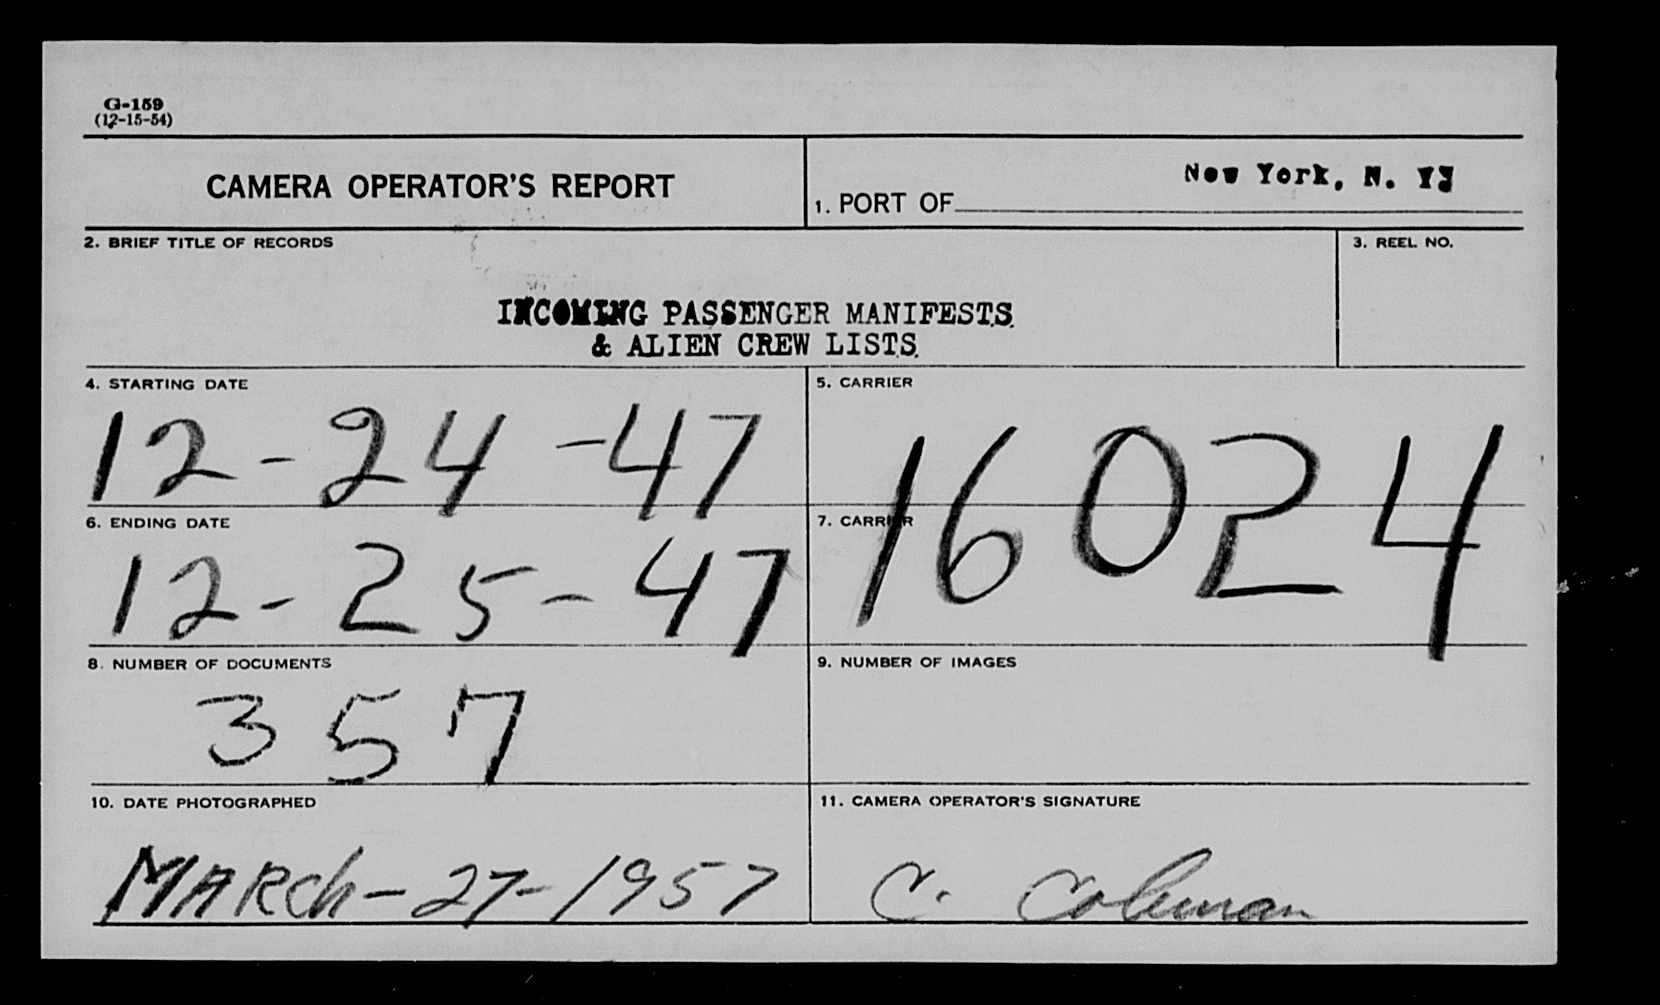 G-159
(12-15-54)
CAMERA OPERATOR'S REPORT
1. PORT OF New York, N. Y.
2. BRIEF TITLE OF RECORDS
3. REEL NO.
INCOMING PASSENGER MANIFESTS
& ALIEN CREW LISTS.
4. STARTING DATE
12-24-47
5. CARRIER
16024
6. ENDING DATE
12-25-47
7. CARRIER
8. NUMBER OF DOCUMENTS
357
9. NUMBER OF IMAGES
10. DATE PHOTOGRAPHED
MARCh-27-1957
11. CAMERA OPERATOR'S SIGNATURE
C. Coleman